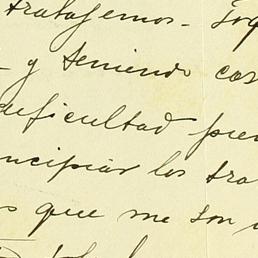 tratajemos - Toq
- y teniendo cas
dificultad pue
ncipiar los tra
s que me son